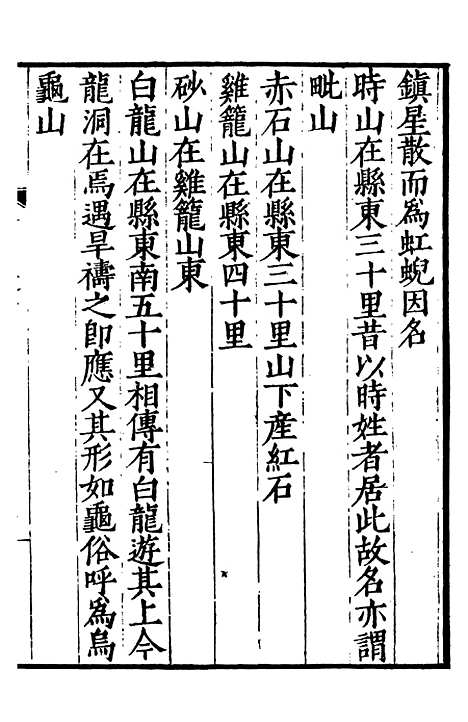 鎮星散而爲虹蜺因名
時山在縣東三十里昔以時姓者居此故名亦謂
毗山
赤石山在縣東三十里山下產紅石
雞籠山在縣東四十里
砂山在雞籠山東
白龍山在縣東南五十里相傳有白龍遊其上今
龍洞在焉遇旱禱之卽應又其形如龜俗呼爲烏
龜山